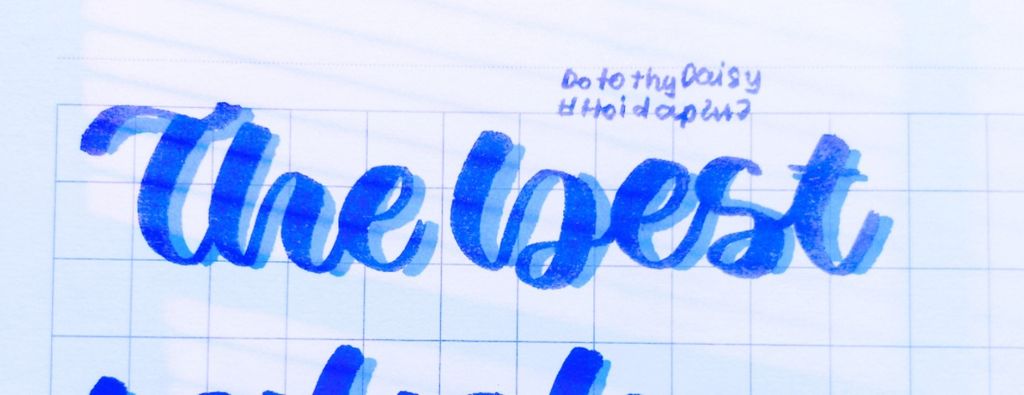 DotothyDaisy
#Hoidap247
The best